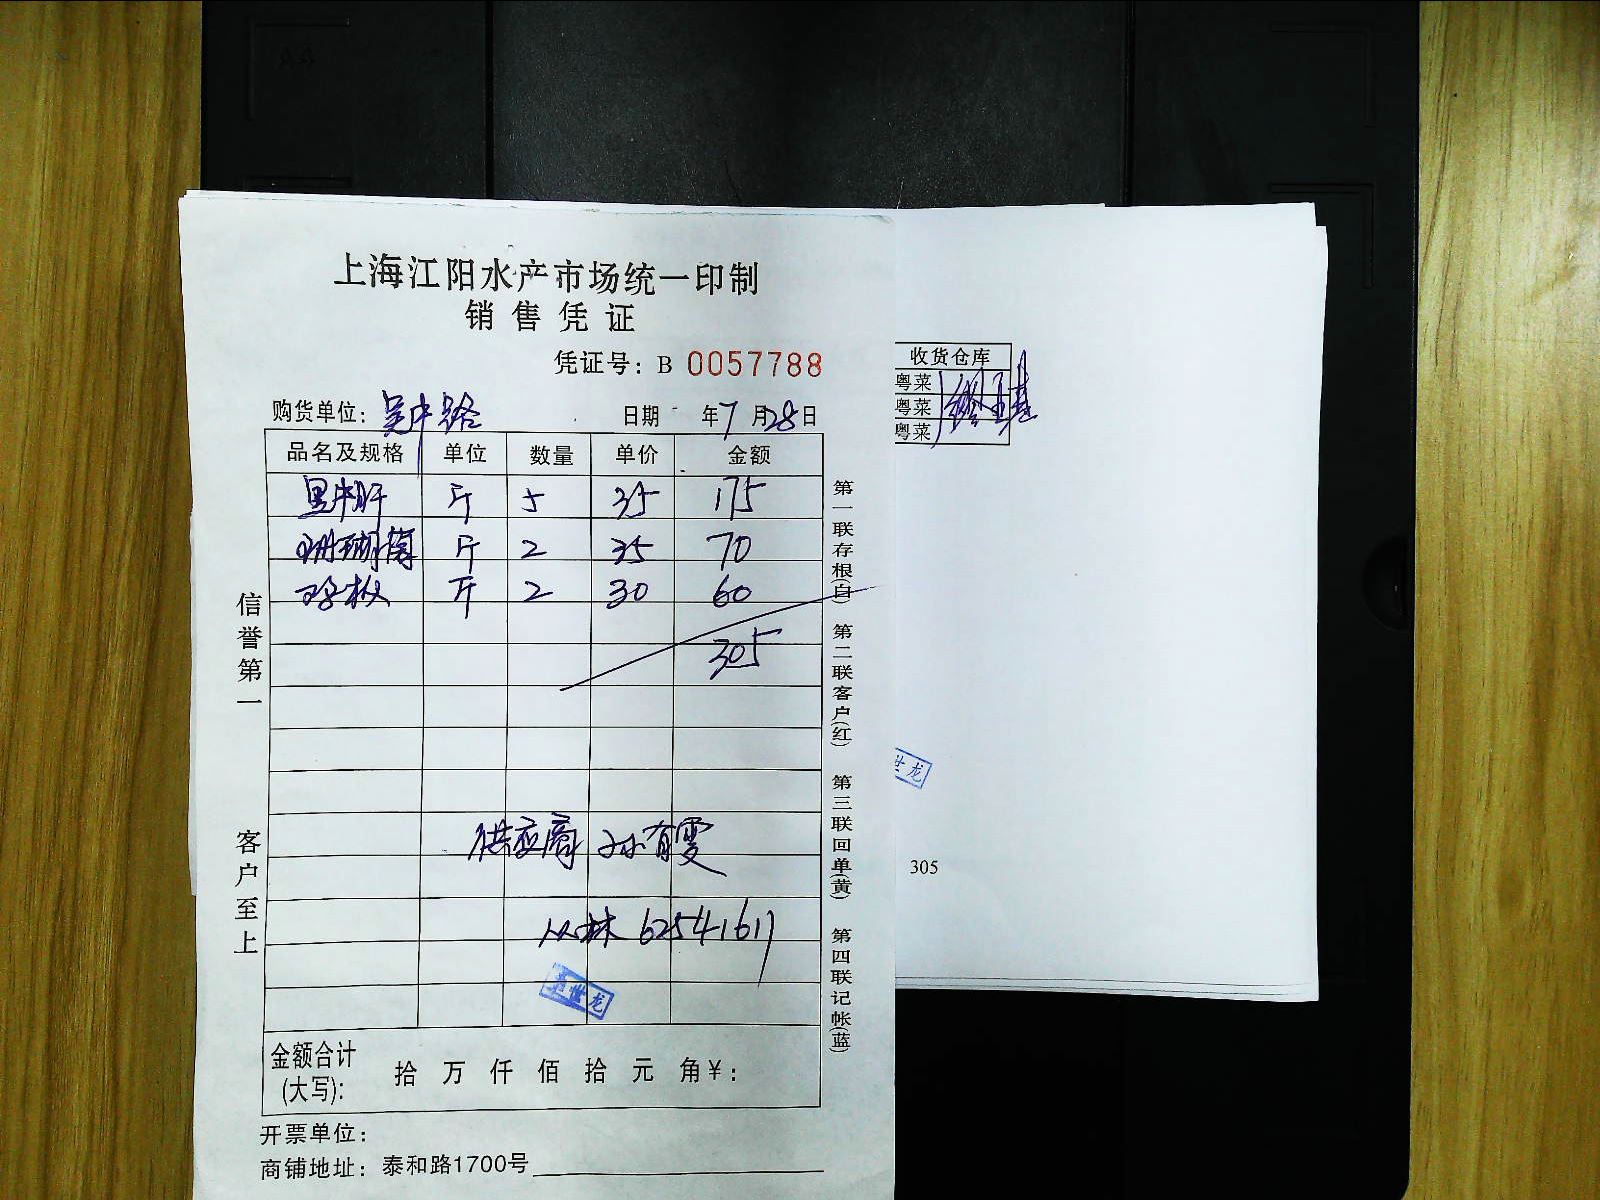 上海江阳水产市场统一印制
销售凭证
凭证号：B 0057788
购货单位：吴中路 日期 年7月28日
品名及规格 单位 数量 单价 金额
黑牛肝 斤 5 35 175
珊瑚菌 斤 2 35 70
鸡枞 斤 2 30 60
305
供应商 孙有雯
丛林 62541617
世龙
金额合计(大写)： 拾 万 仟 佰 拾 元 角￥：
开票单位：
商铺地址：泰和路1700号
信誉第一
客户至上
第一联存根(白) 第二联客户(红) 第三联回单(黄) 第四联记帐(蓝)
收货仓库
粤菜
粤菜
粤菜
世龙
305